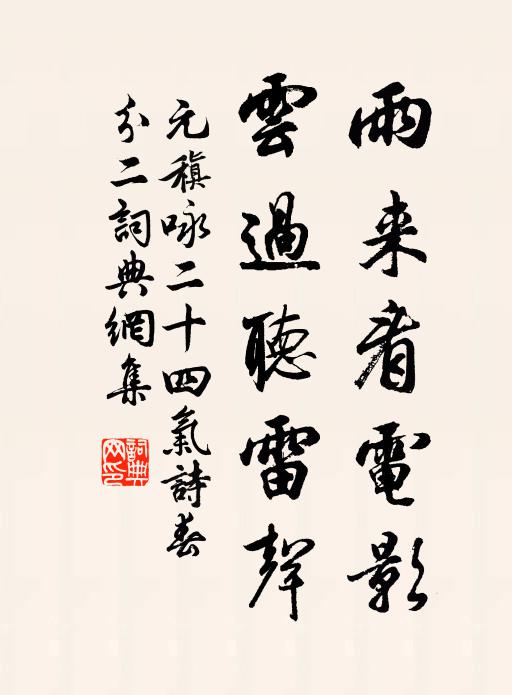 雨来看電影
雲過聽雷聲
元稹咏二十四氣詩春
分二詞典網集
詞典網印